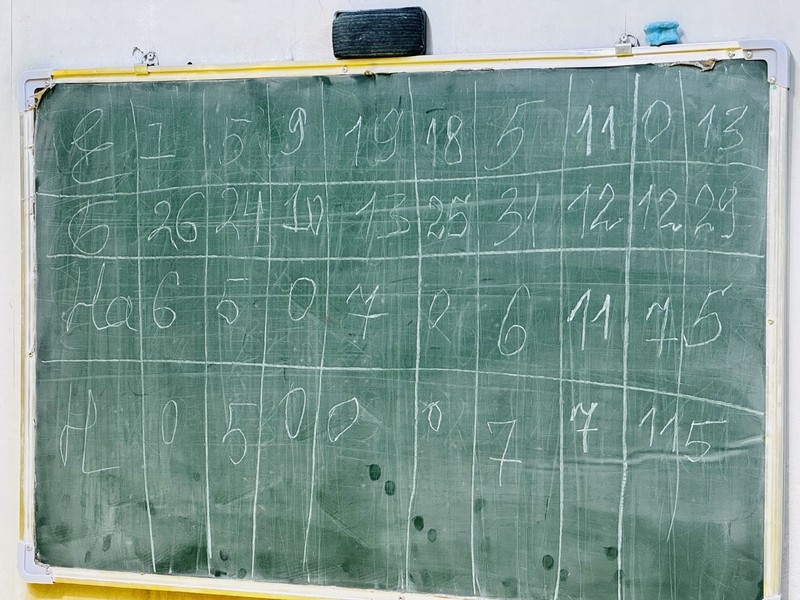 1 5 9 19 18 5 11 0 13
Б 26 24 10 13 25 31 12 12 29
На 6 5 0 7 0 6 11 7 5
Н 0 5 0 0 0 7 7 11 5